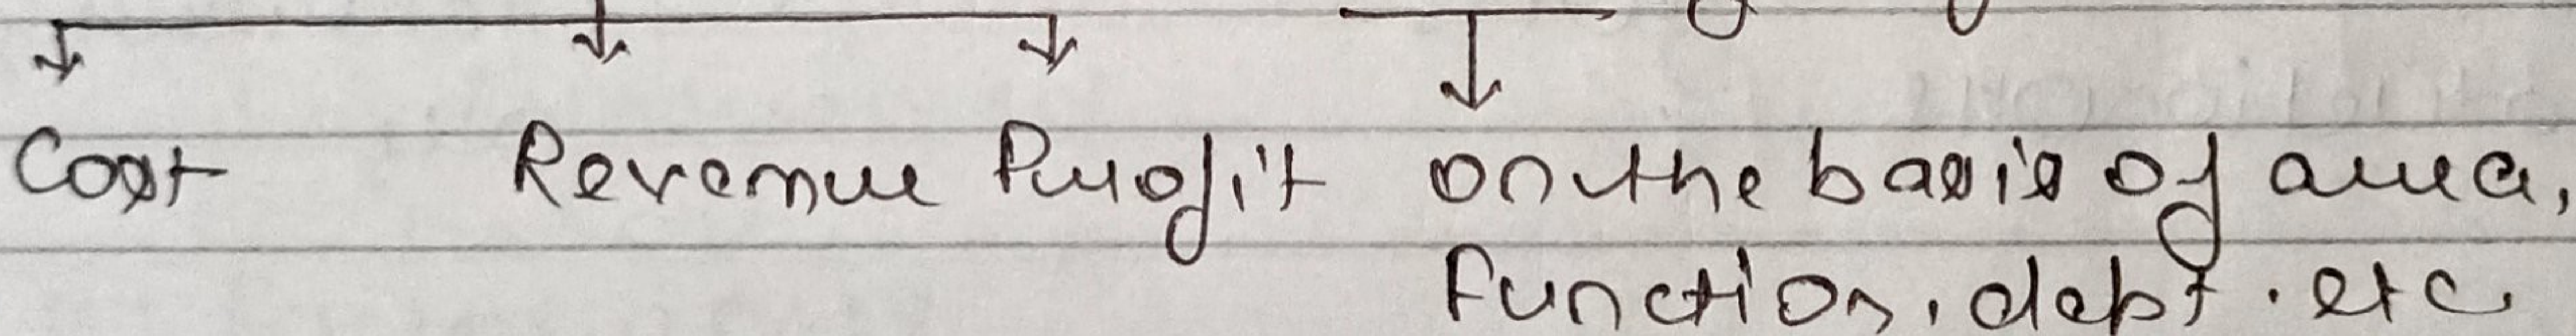 Cost Revenue Profit on the basis of area,
function, dept. etc.